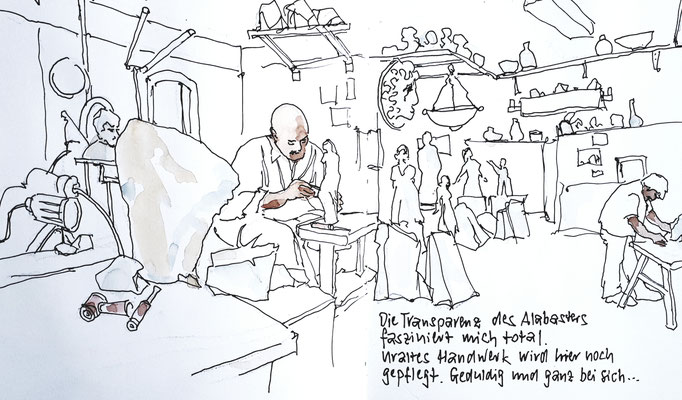 Die Transparenz des Alabasters
fasziniert mich total.
Uraltes Handwerk wird hier noch
gepflegt. Geduldig und ganz bei sich...